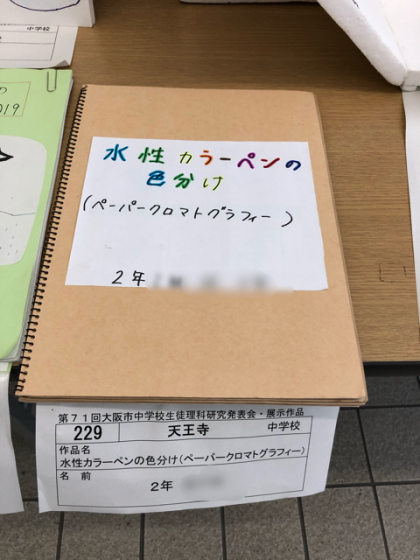 中学校
2019
水性カラーペンの
色分け
(ペーパークロマトグラフィー)
2年
第71回大阪市中学校生徒理科研究発表会・展示作品
229 天王寺 中学校
作品名
水性カラーペンの色分け(ペーパークロマトグラフィー)
名 前
2年